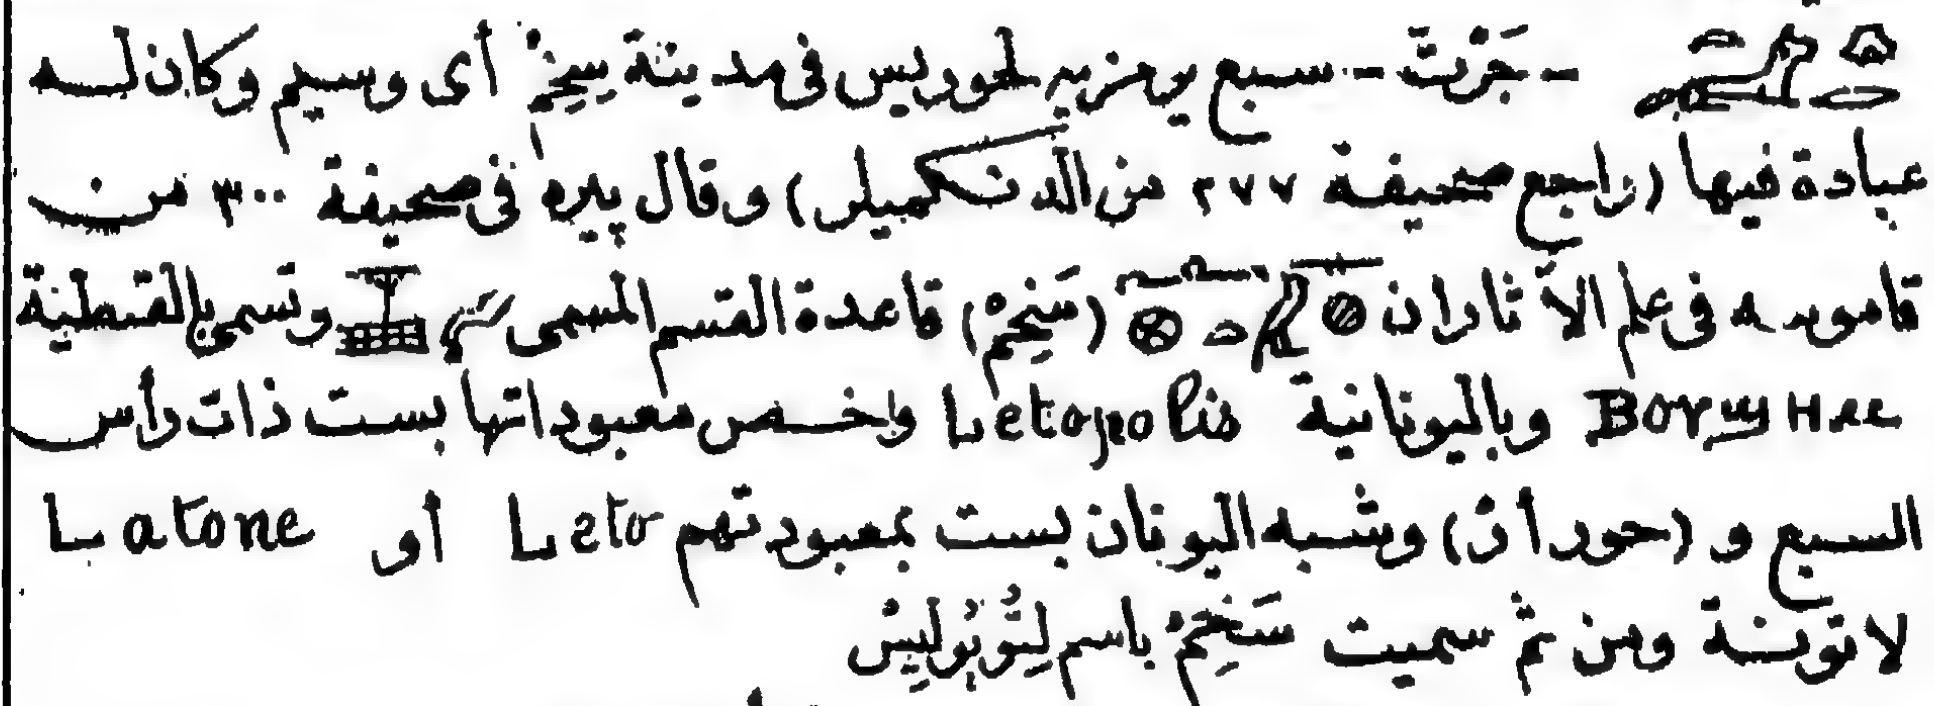 - جَزَتّ - سبع يرمز به لحوريس فى مدينة سِخِمْ أى وسيم وكان له
عبادة فيها (راجع صحيفة ٢٧٧ من الدنكميلر) وقال پيره فى صحيفة ٣٠٠ من
قاموسه فى علم الآثار ان (سَخِمْ) قاعدة القسم المسمى وتسمى بالقبطية
ΒΟΥϢΗΜ وباليونانية Letopolis واخص معبوداتها بست ذات رأس
السبع و (حور أز) وشبه اليونان بست بمعبودتهم Leto أو Latone
لاتونة ومن ثم سميت سَخِمْ باسم لِتُوپُولِيسْ